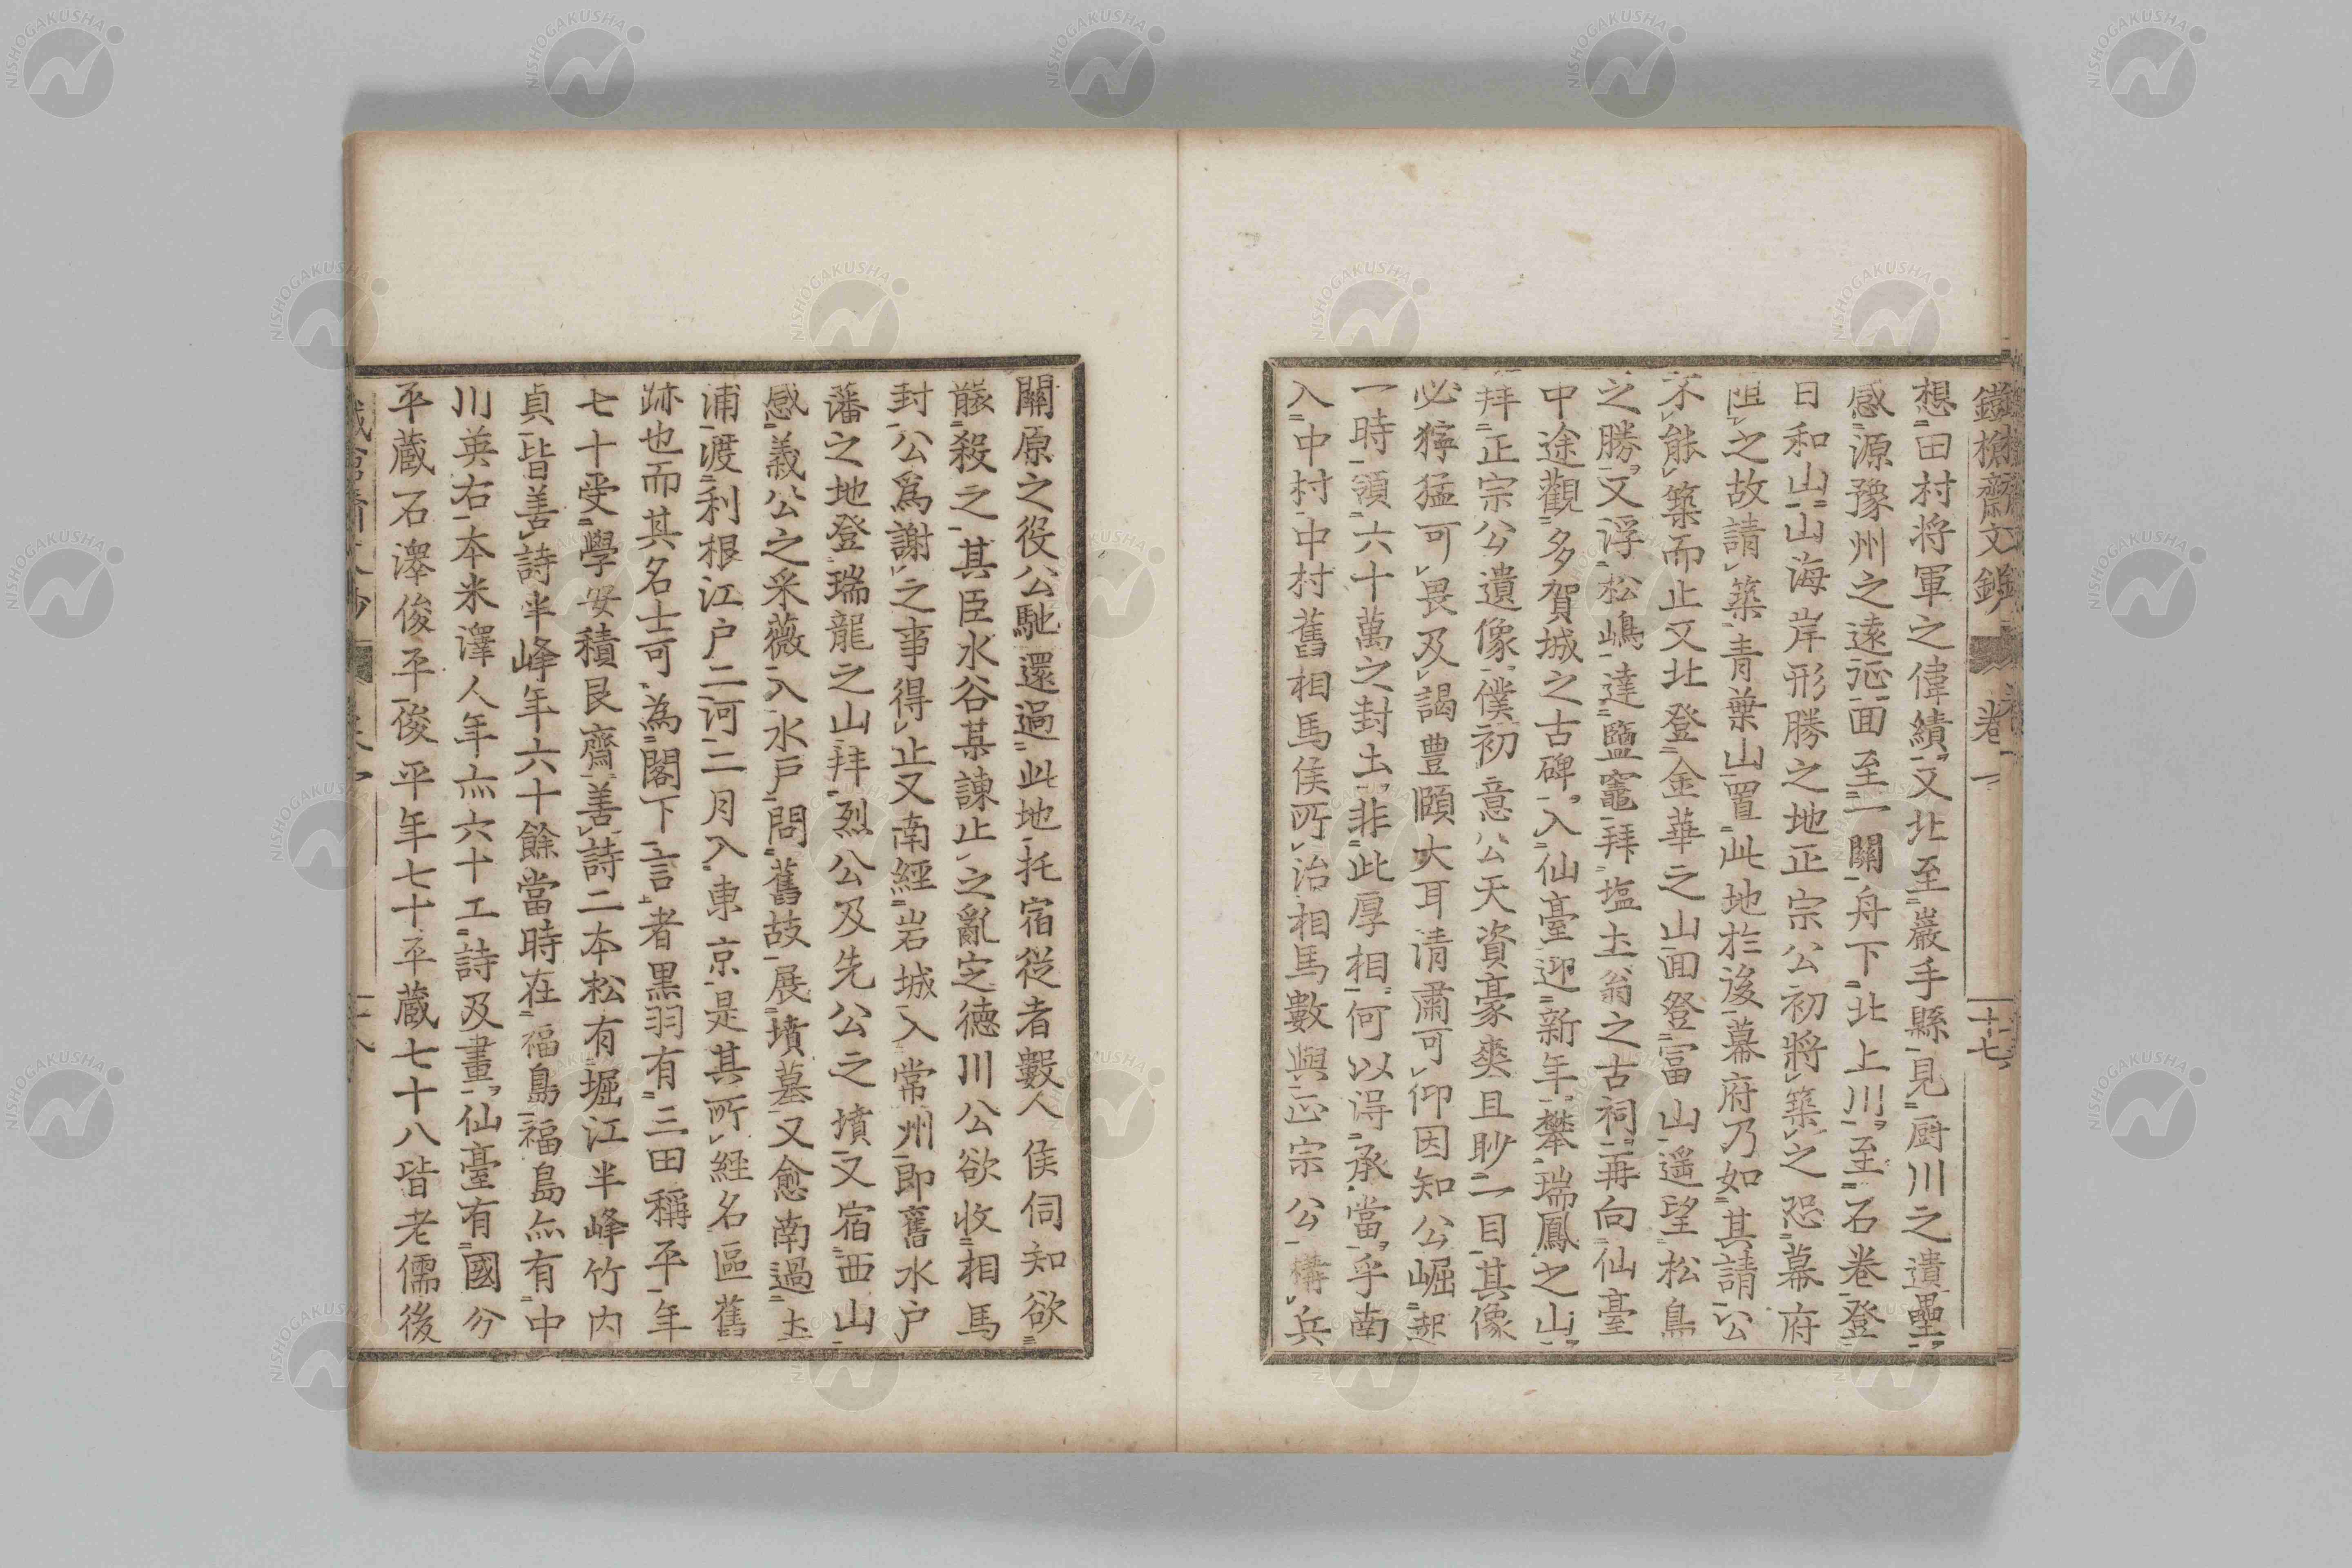 鐵槍齋文鈔 卷一 十七
想田村将軍之偉績又北至巖手縣見厨川之遺壘
感源豫州之遠征囬至一關舟下北上川至石卷登
日和山山海岸形勝之地正宗公初將築之恐幕府
阻之故請築青葉山置此地於後幕府乃如其請公
不能築而止又北登金華之山囬登冨山遥望松島
之勝又浮松嶋達鹽竈拜塩土翁之古祠再向仙臺
中途觀多賀城之古碑入仙臺迎新年攀瑞鳳之山
拜正宗公遺像僕初意公天資豪爽且眇一目其像
必獰猛可畏及謁豊頤大耳清肅可仰因知公崛起
一時領六十萬之封土非此厚相何以得承當乎南
入中村中村舊相馬侯所治相馬數與正宗公構兵
關原之役公馳還過此地托宿從者數人侯伺知欲
殺之其臣水谷某諫止之亂定德川公欲收相馬
封公爲謝之事得止又南經岩城入常州即舊水户
藩之地登瑞龍之山拜烈公及先公之墳又宿西山
感義公之采薇入水戸問舊故展墳墓又愈南過土
浦渡利根江户二河二月入東京是其所經名區舊
跡也而其名士可為閣下言者黒羽有三田稱平年
七十受學安積艮齋善詩二本松有堀江半峰竹内
貞皆善詩半峰年六十餘當時在福島福島亦有中
川英右本米澤人年亦六十工詩及畫仙臺有國分
平蔵石澤俊平俊平年七十平蔵七十八皆老儒後